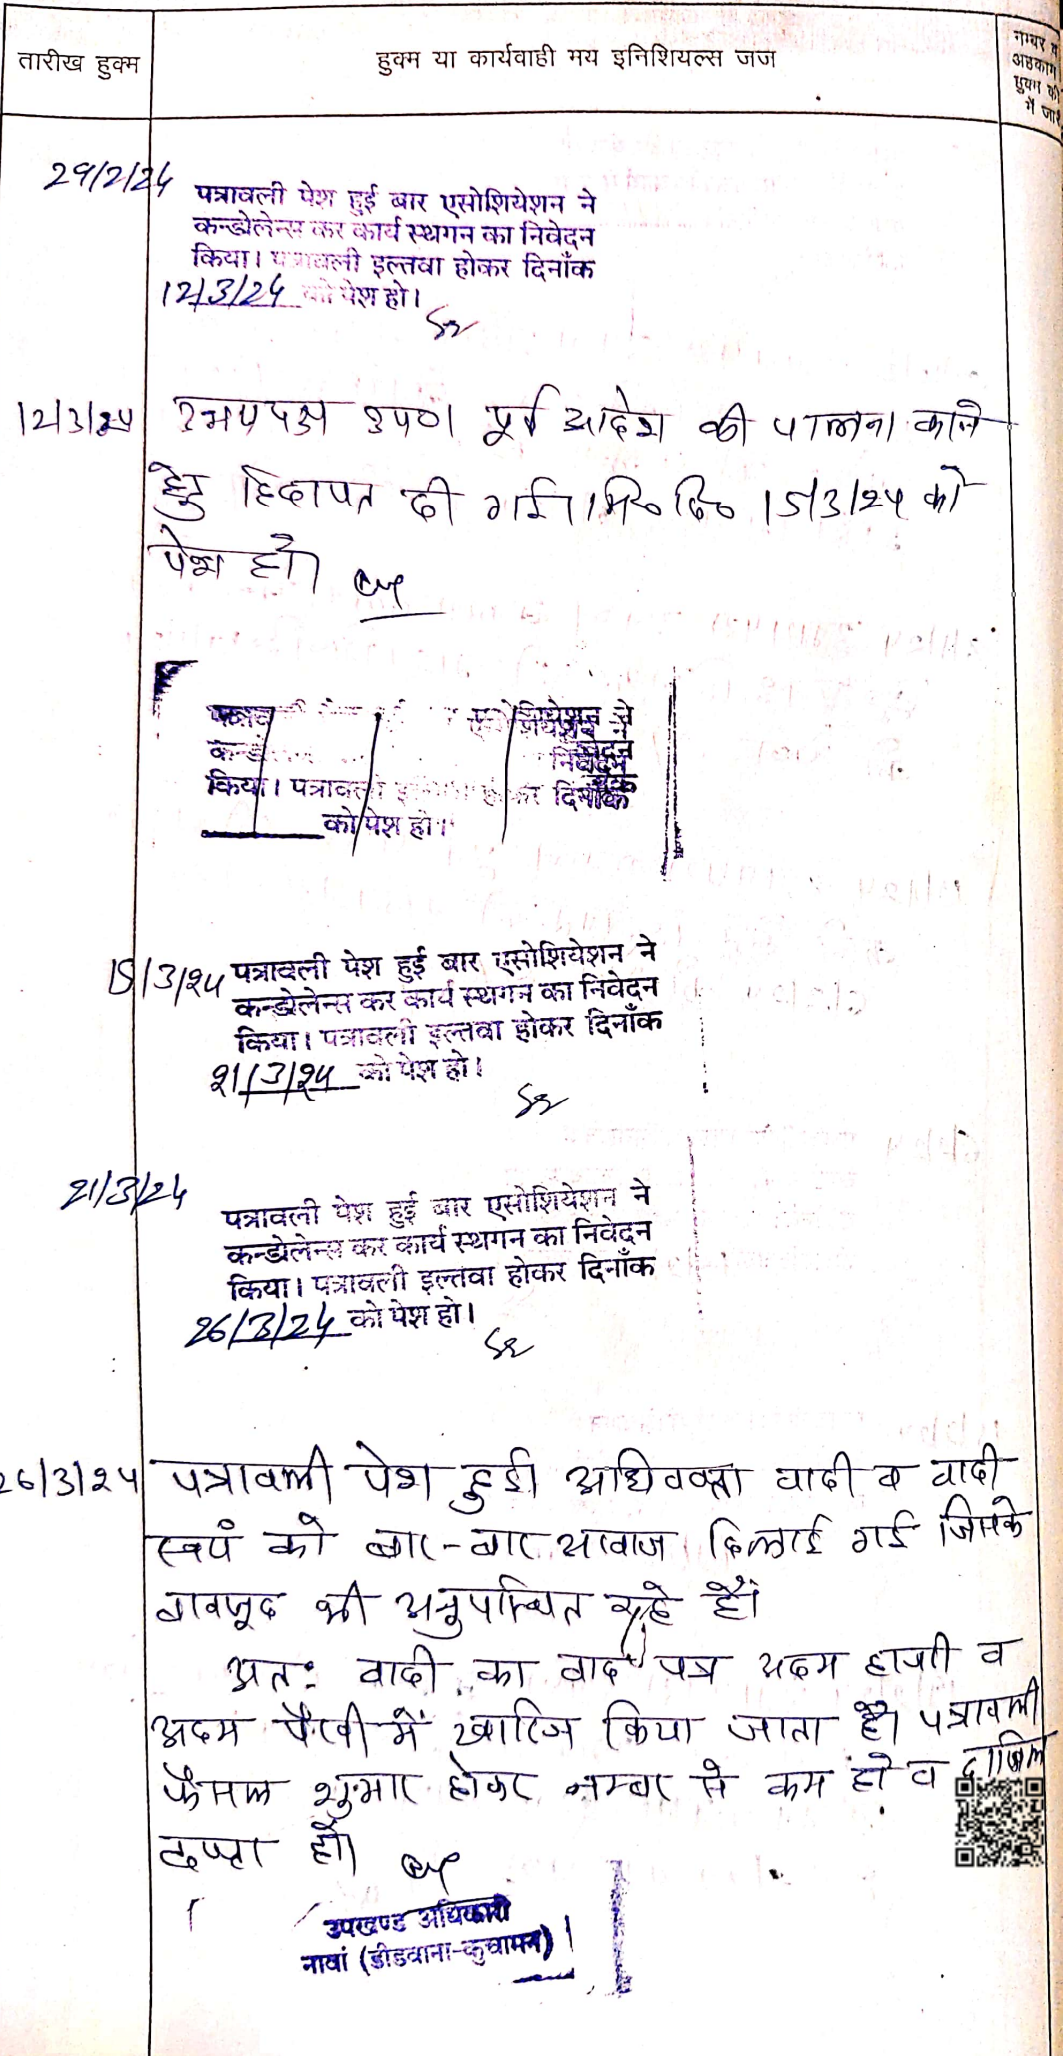 तारीख हुक्म
हुक्म या कार्यवाही मय इनिशियल्स जज
नम्बर व
अहकाम
हुक्म की
में जारी
29/2/24
पत्रावली पेश हुई बार एसोशियेशन ने
कन्डोलेन्स कर कार्य स्थगन का निवेदन
किया। पत्रावली इल्तवा होकर दिनाँक
12/3/24 को पेश हो।
12/3/24 उभयपक्ष उप०। पूर्व आदेश की पालना करने
हेतु हिदायत दी गई। मि० दि० 15/3/24 को
पेश हो।
एसोशियेशन ने
निवेदन
किया। पत्रावली होकर दिनाँक
को पेश हो।
15/3/24 पत्रावली पेश हुई बार एसोशियेशन ने
कन्डोलेन्स कर कार्य स्थगन का निवेदन
किया। पत्रावली इल्तवा होकर दिनाँक
21/3/24 को पेश हो।
21/3/24
पत्रावली पेश हुई बार एसोशियेशन ने
कन्डोलेन्स कर कार्य स्थगन का निवेदन
किया। पत्रावली इल्तवा होकर दिनाँक
26/3/24 को पेश हो।
26/3/24 पत्रावली पेश हुई। अधिवक्ता वादी व वादी
स्वयं को बार-बार आवाज दिलाई गई जिसके
बावजूद भी अनुपस्थित रहे हैं।
अतः वादी का वाद पत्र अदम हाजरी व
अदम पैरवी में खारिज किया जाता है। पत्रावली
फैसल शुमार होकर नम्बर से कम हो व दाखिल
दफ्तर हो।
उपखण्ड अधिकारी
नावां (डीडवाना-कुचामन)